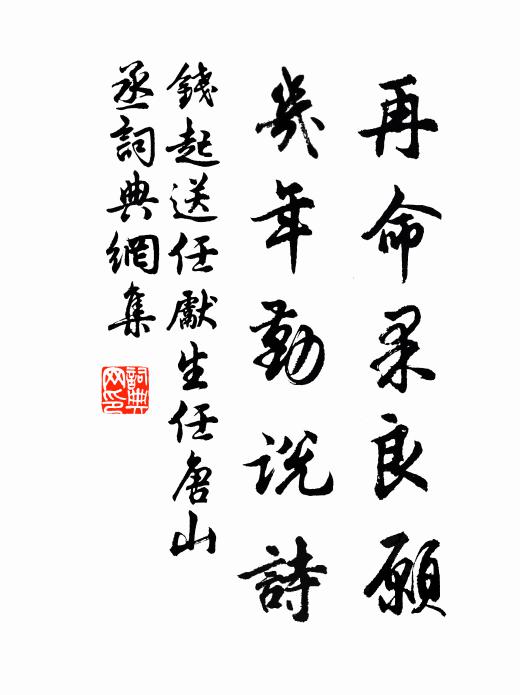 再命果良願
幾年勤説詩
錢起送任獻生任唐山
丞詞典網集
詞典
网印